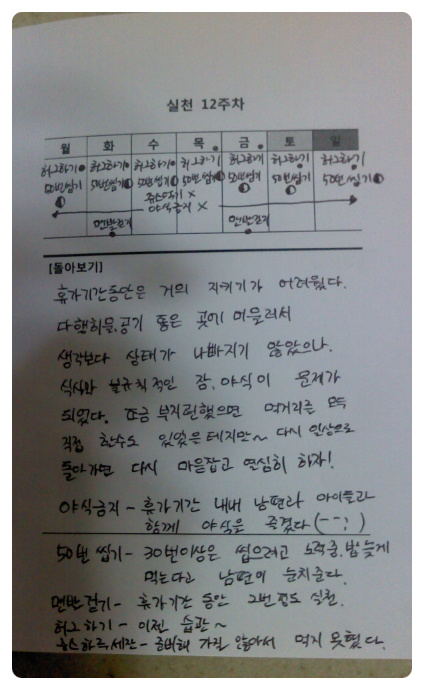 실천 12주차
월 화 수 목 금 토 일
허그하기 허그하기 허그하기 허그하기 허그하기 허그하기 허그하기
50번씹기 50번씹기 50번씹기 50번씹기 50번씹기 50번씹기 50번씹기
야식금지 ×
맨발걷기 맨발걷기
[돌아보기]
휴가기간동안은 거의 지키기가 어려웠다.
다행히 물,공기 좋은 곳에 머물러서
생각보다 상태가 나빠지기 않았으나.
식사와 불규칙적인 잠, 야식이 문제가
되었다. 조금 부지런했으면 먹거리를
직접 할수도 있었을테지만~ 다시 일상으로
돌아가면 다시 마음잡고 열심히 하자!
야식금지 - 휴가기간 내내 남편과 아이들과
함께 야식을 즐겼다 (--;)
50번 씹기 - 30번이상은 씹으려고 노력중. 밥늦게
먹는다고 남편이 눈치준다.
맨발걷기 - 휴가기간 동안 2번정도 실천.
허그하기 - 이젠 습관~
세잔 - 준비해 가질 않아서 먹지 못했다.